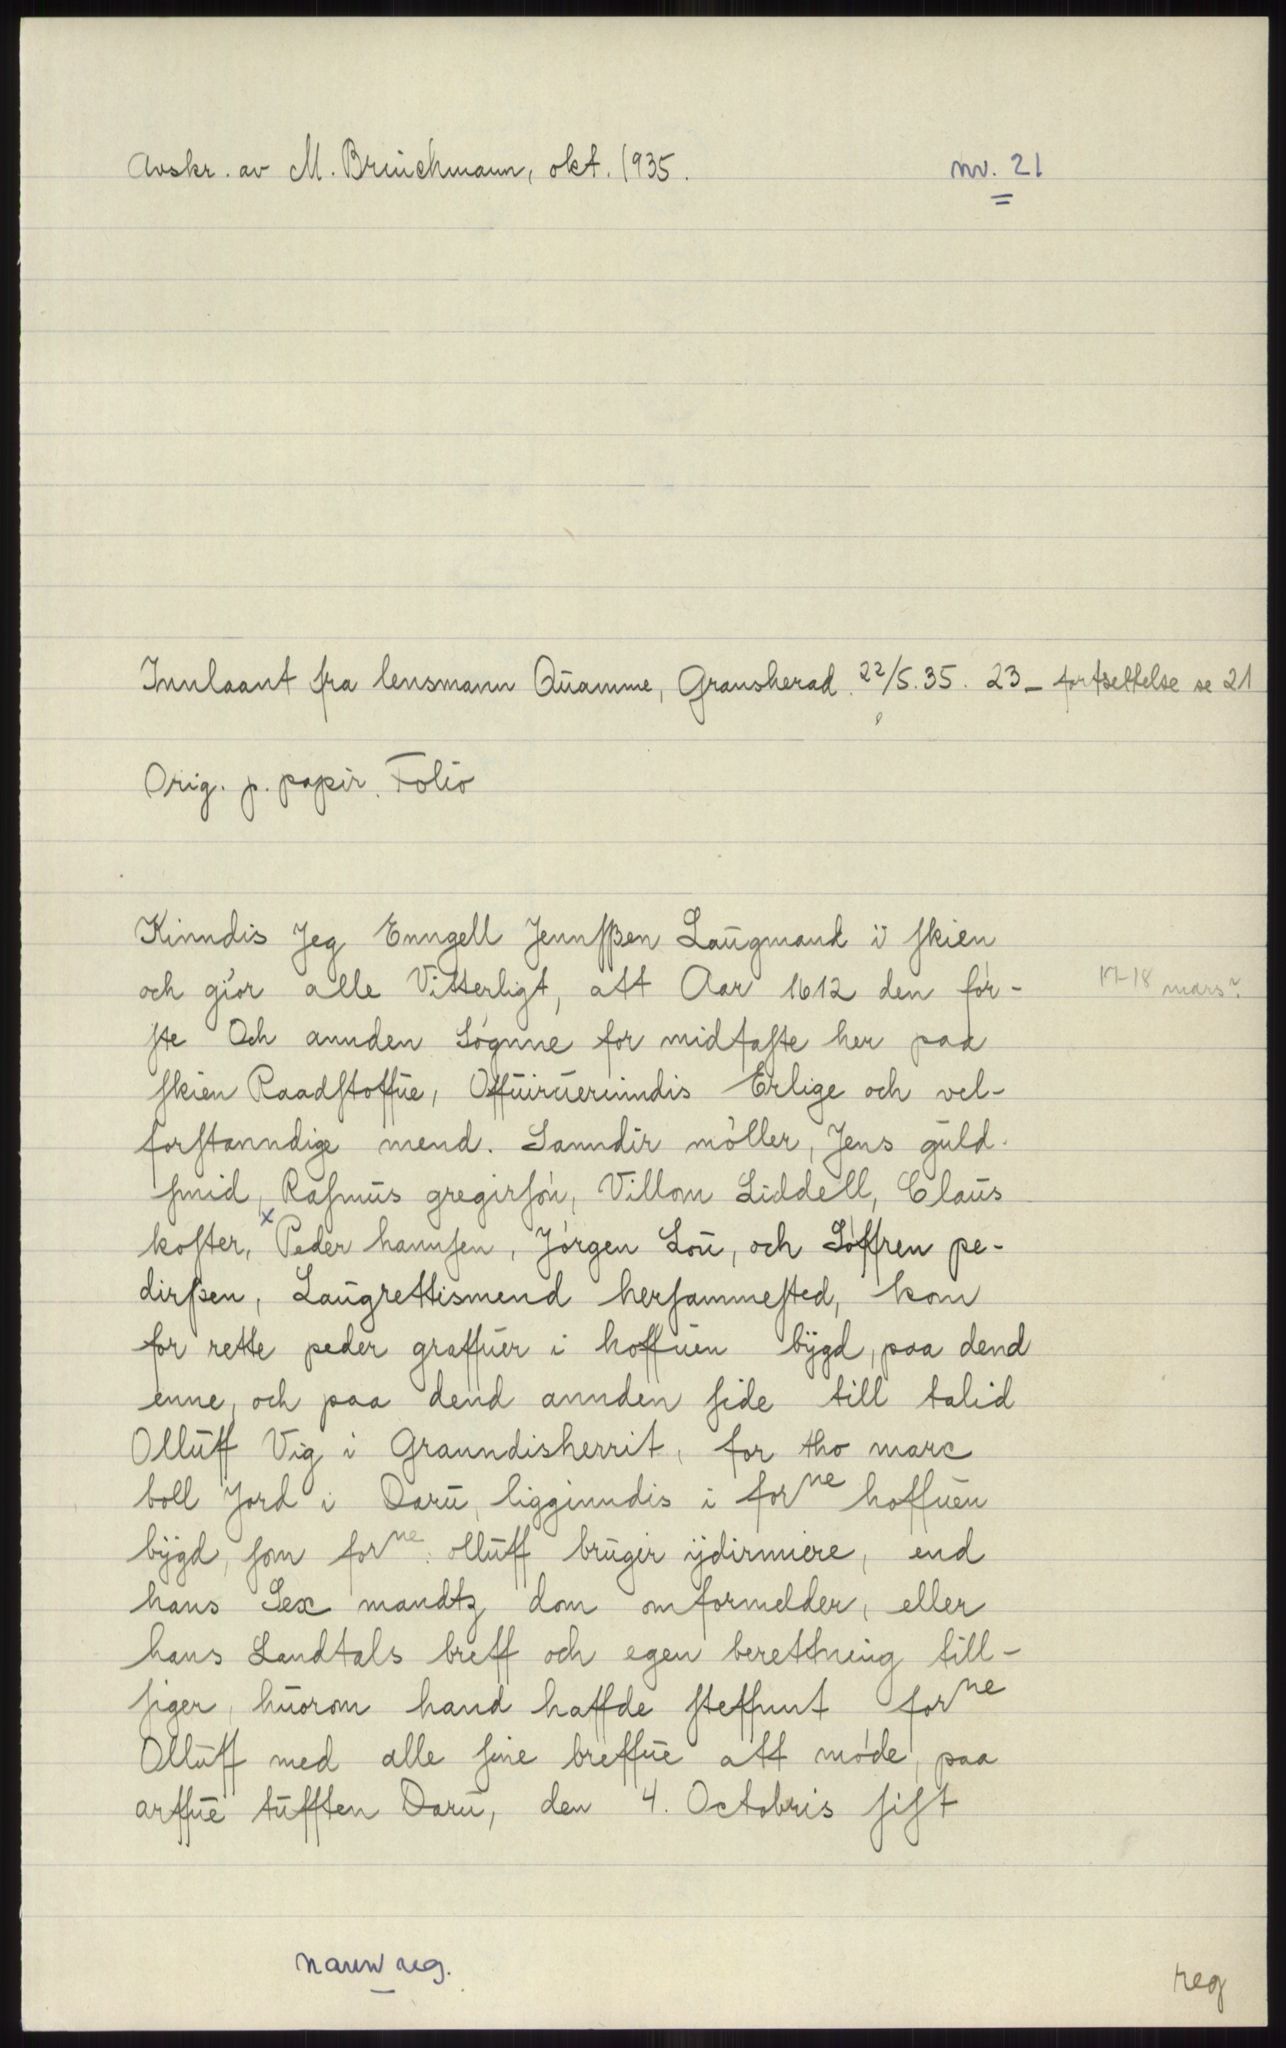 Avskr. av M. Brinchmann, okt. 1935.
nr. 21
Innlaant fra lensmann Quamme, Gransherad 22/5.35. 23 – fortsettelse se 21
Orig. p. papir. Folio
Kinndis Jeg Enngell Jennsßen Laugmand ij skien
och giör alle Vitterligt, att Aar 1612 den för-
17-18 mars?
ste Och annden Sögnne for midfaste her paa
skien Raadstoffue, Offuiruerinndis Erlige och vel-
forstanndige mend. Sanndir möller, Jens guld-
smid, Rasmus gregirsön, Villom Liddell, Claus
koster, ˣPeder hannsen, Jörgen Lou, och Söffren pe-
dirsen, Laugrettismend hersammested, kom
for rette peder graffuer i hoffuen bÿgd, paa dend
enne, och paa dend annden side till talid
Olluff Vig i Granndisherrit, for tho marc
boll Jord i Daru, ligginndis i forne hoffuen
bÿgd, som forne: olluff bruger ÿdirmiere, end
hans Sex mandtz dom omformelder, eller
hans Landtals breff och egen berettning till-
siger, huorom hand haffde steffunt forne
Olluff med alle sine breffue att möde, paa
arffue tufften Daru, den 4. Octobris sist
navnreg.
reg